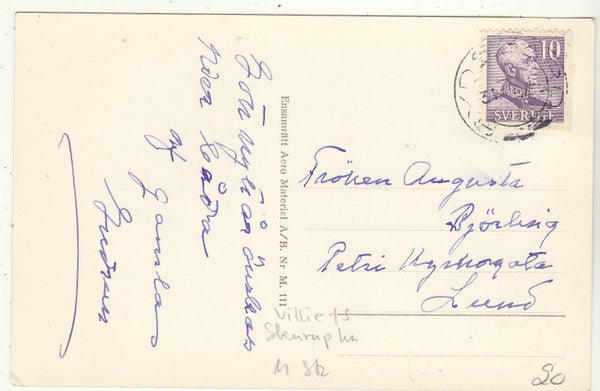 Gott nytt år önskas
Eder båda
af
gamla
Gudrun
Ensamrätt Aero Materiel A/B. Nr M. 111
10
SVERIGE
Fröken Augusta
Björling
Petri Kyrkogata
Lund
Villie fs
Skurup hn
M Sk
20